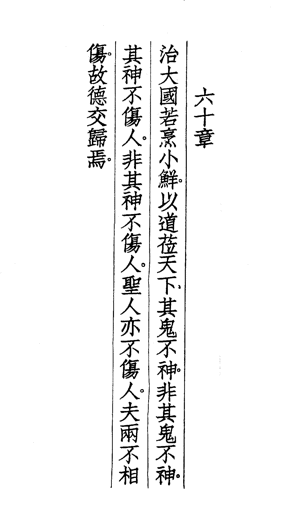 六十章
治大國若烹小鮮。以道莅天下、其鬼不神。非其鬼不神。
其神不傷人。非其神不傷人。聖人亦不傷人。夫兩不相
傷。故德交歸焉。